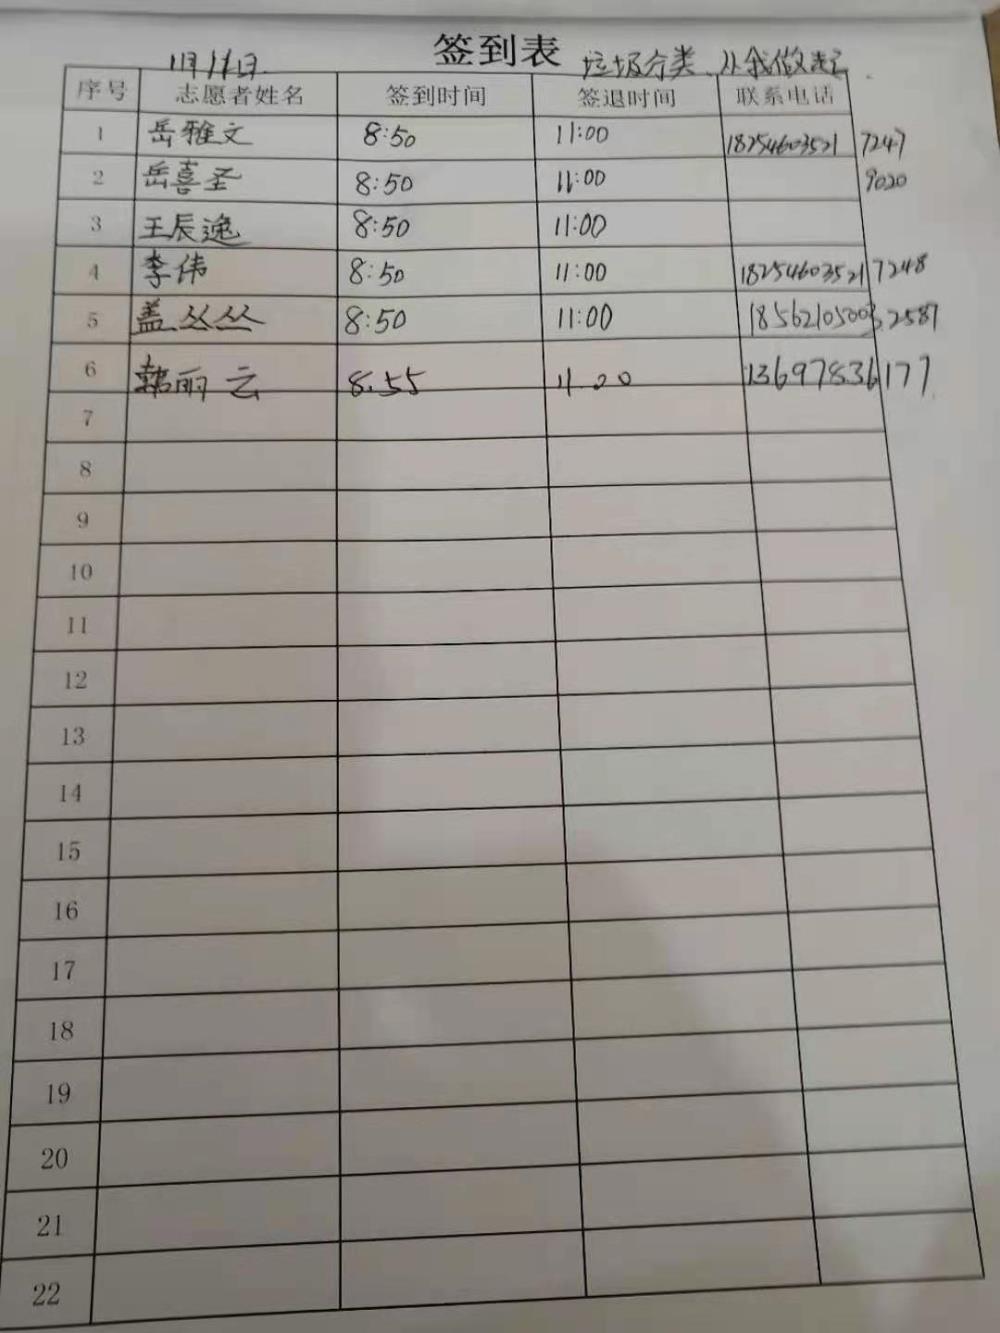 签到表
11月11日 垃圾分类、从我做起
序号 志愿者姓名 签到时间 签退时间 联系电话
1 岳雅文 8:50 11:00 18254603521 7247
2 岳喜圣 8:50 11:00 9020
3 王辰逸 8:50 11:00
4 李伟 8:50 11:00 18254603521 7248
5 盖丛丛 8:50 11:00 18562105003, 2587
6 韩丽云 8.55 11.20 13697836177
7
8
9
10
11
12
13
14
15
16
17
18
19
20
21
22